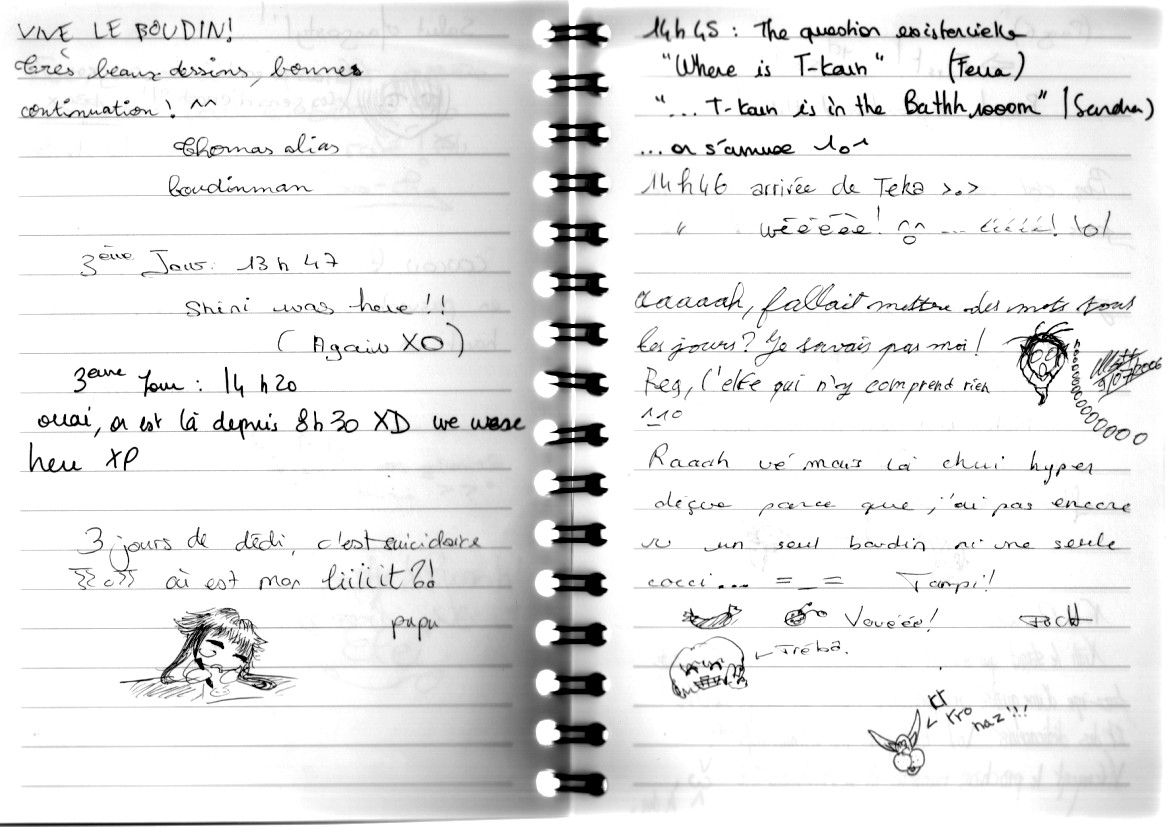 VIVE LE BOUDIN!
Très beaux dessins, bonnes
continuation! ^^
Thomas alias
boudinman
3ème Jour: 13h47
Shini was here!!
(Again XO)
3ème Jour: 14h20
ouai, on est là depuis 8h30 XD we were
here XP
3 jours de dédi, c'est suicidaire
où est mon liiiiit?!
pupu
14h45: The question existencielle
"Where is T-kain" (Feria)
"... T-kain is in the Bathhrooom" (Sandra)
...on s'amuse
14h46 arrivée de Teka >.>
" wéééée! ^^ ... iiiii! \o/
aaaaah, fallait mettre des mots tous
les jours? Je savais pas moi!
Reg, l'elfe qui n'y comprend rien
Raaah vé mais là chui hyper
déçue parce que j'ai pas encore
vu un seul boudin ni une seule
cocci... =_= Tanpi!
Vouéée!
← Tréba.
← Kro
naz'!!!